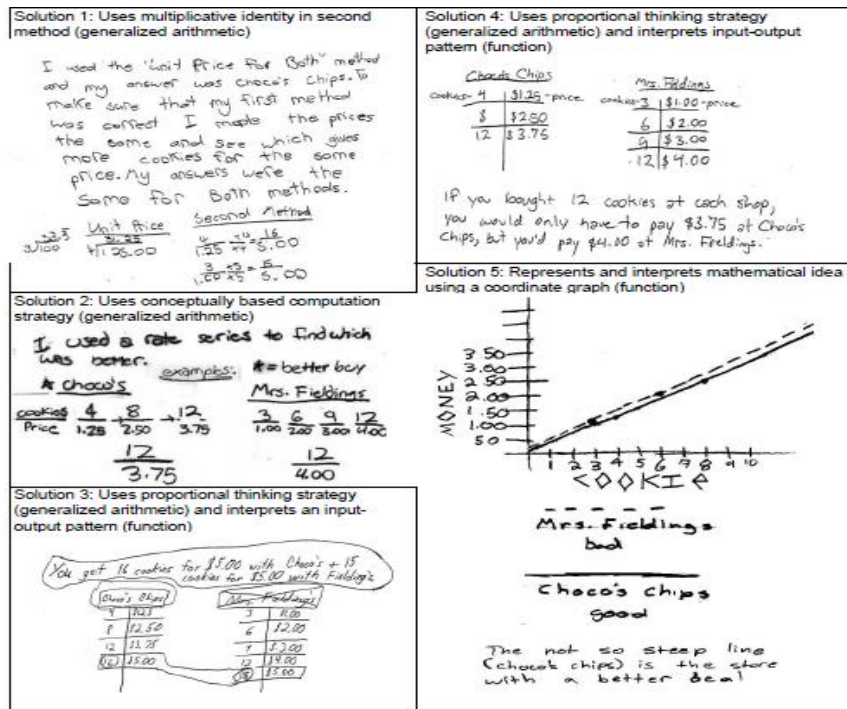 Solution 1: Uses multiplicative identity in second
method (generalized arithmetic)
I used the "Unit Price For Both" method
and my answer was Choco's Chips. To
make sure that my first method
was correct I made the prices
the same and see which gives
more cookies for the same
price. My answers were the
Same for Both methods.
Unit Price
Second Method
4/1.25 ×4/×4 = 16/5.00
Solution 2: Uses conceptually based computation
strategy (generalized arithmetic)
I used a rate series to find which
was better.
examples:
*= better buy
* Choco's
cookies/Price 4/1.25 → 8/2.50 → 12/3.75
12/3.75
Mrs. Fieldings
3/1.00 6/2.00 9/3.00 12/4.00
12/4.00
Solution 3: Uses proportional thinking strategy
(generalized arithmetic) and interprets an input-
output pattern (function)
You get 16 cookies for $5.00 with Choco's + 15
cookies for $5.00 with Fielding's
Choco's Chips
4 $1.25
8 $2.50
12 $3.75
16 $5.00
Mrs. Fielding's
3 $1.00
6 $2.00
9 $3.00
12 $4.00
15 $5.00
Solution 4: Uses proportional thinking strategy
(generalized arithmetic) and interprets input-output
pattern (function)
Choco's Chips
cookies- 4 $1.25 -price
8 $2.50
12 $3.75
Mrs. Fieldings
cookies- 3 $1.00 -price
6 $2.00
9 $3.00
12 $4.00
If you bought 12 cookies at each shop,
you would only have to pay $3.75 at Choco's
Chips, but you'd pay $4.00 at Mrs. Fieldings.
Solution 5: Represents and interprets mathematical idea
using a coordinate graph (function)
MONEY
3.50
3.00
2.50
2.00
1.50
1.00
50
1 2 3 4 5 6 7 8 9 10
COOKIE
Mrs. Fieldings
bad
Choco's chips
good
The not so steep line
(choco's chips) is the store
with a better deal